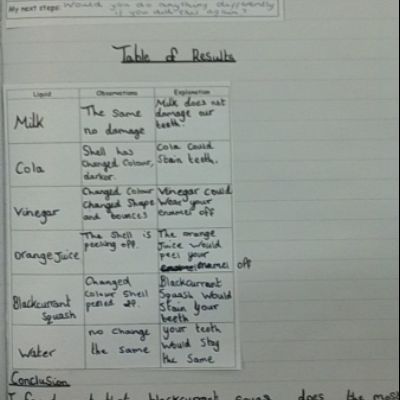 My next steps: Would you do anything differently
if you did this again?
Table of Results
Liquid Observations Explanation
Milk
The Same
no damage
Milk does not
damage our
teeth.
Cola
Shell has
Changed Colour,
darker.
Cola Could
Stain teeth.
Vinegar
Changed Colour
Changed Shape
and bounces
Vinegar Could
Wear your
enamel off
Orange Juice
The Shell is
peeling off.
The orange
Juice would
peel your
enamel off
Blackcurrant
Squash
Changed
Colour Shell
peeled
Blackcurrant
Squash Would
Stain your
teeth
Water
no Change
the same
your teeth
Would Stay
the Same
Conclusion
I that blackcurrant does the most